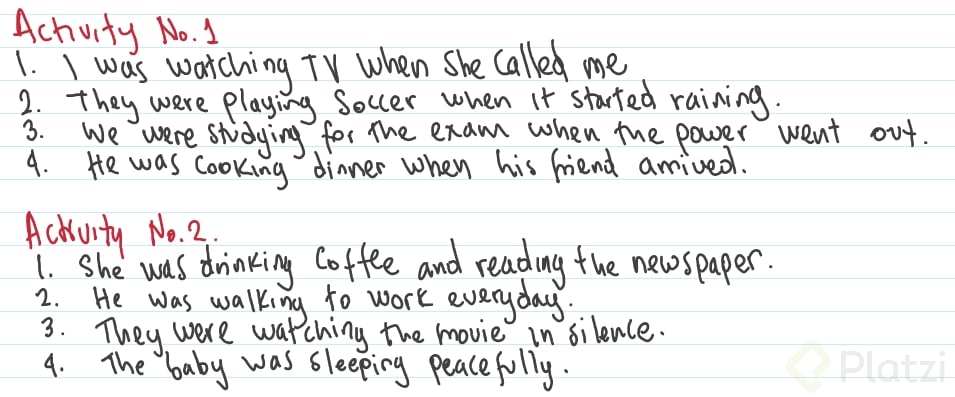 Activity No. 1
1. I was watching TV when she called me
2. They were playing Soccer when it started raining.
3. We were studying for the exam when the power went out.
4. He was cooking dinner when his friend arrived.
Activity No. 2.
1. She was drinking Coffee and reading the newspaper.
2. He was walking to work everyday.
3. They were watching the movie in silence.
4. The baby was sleeping peacefully.
Platzi